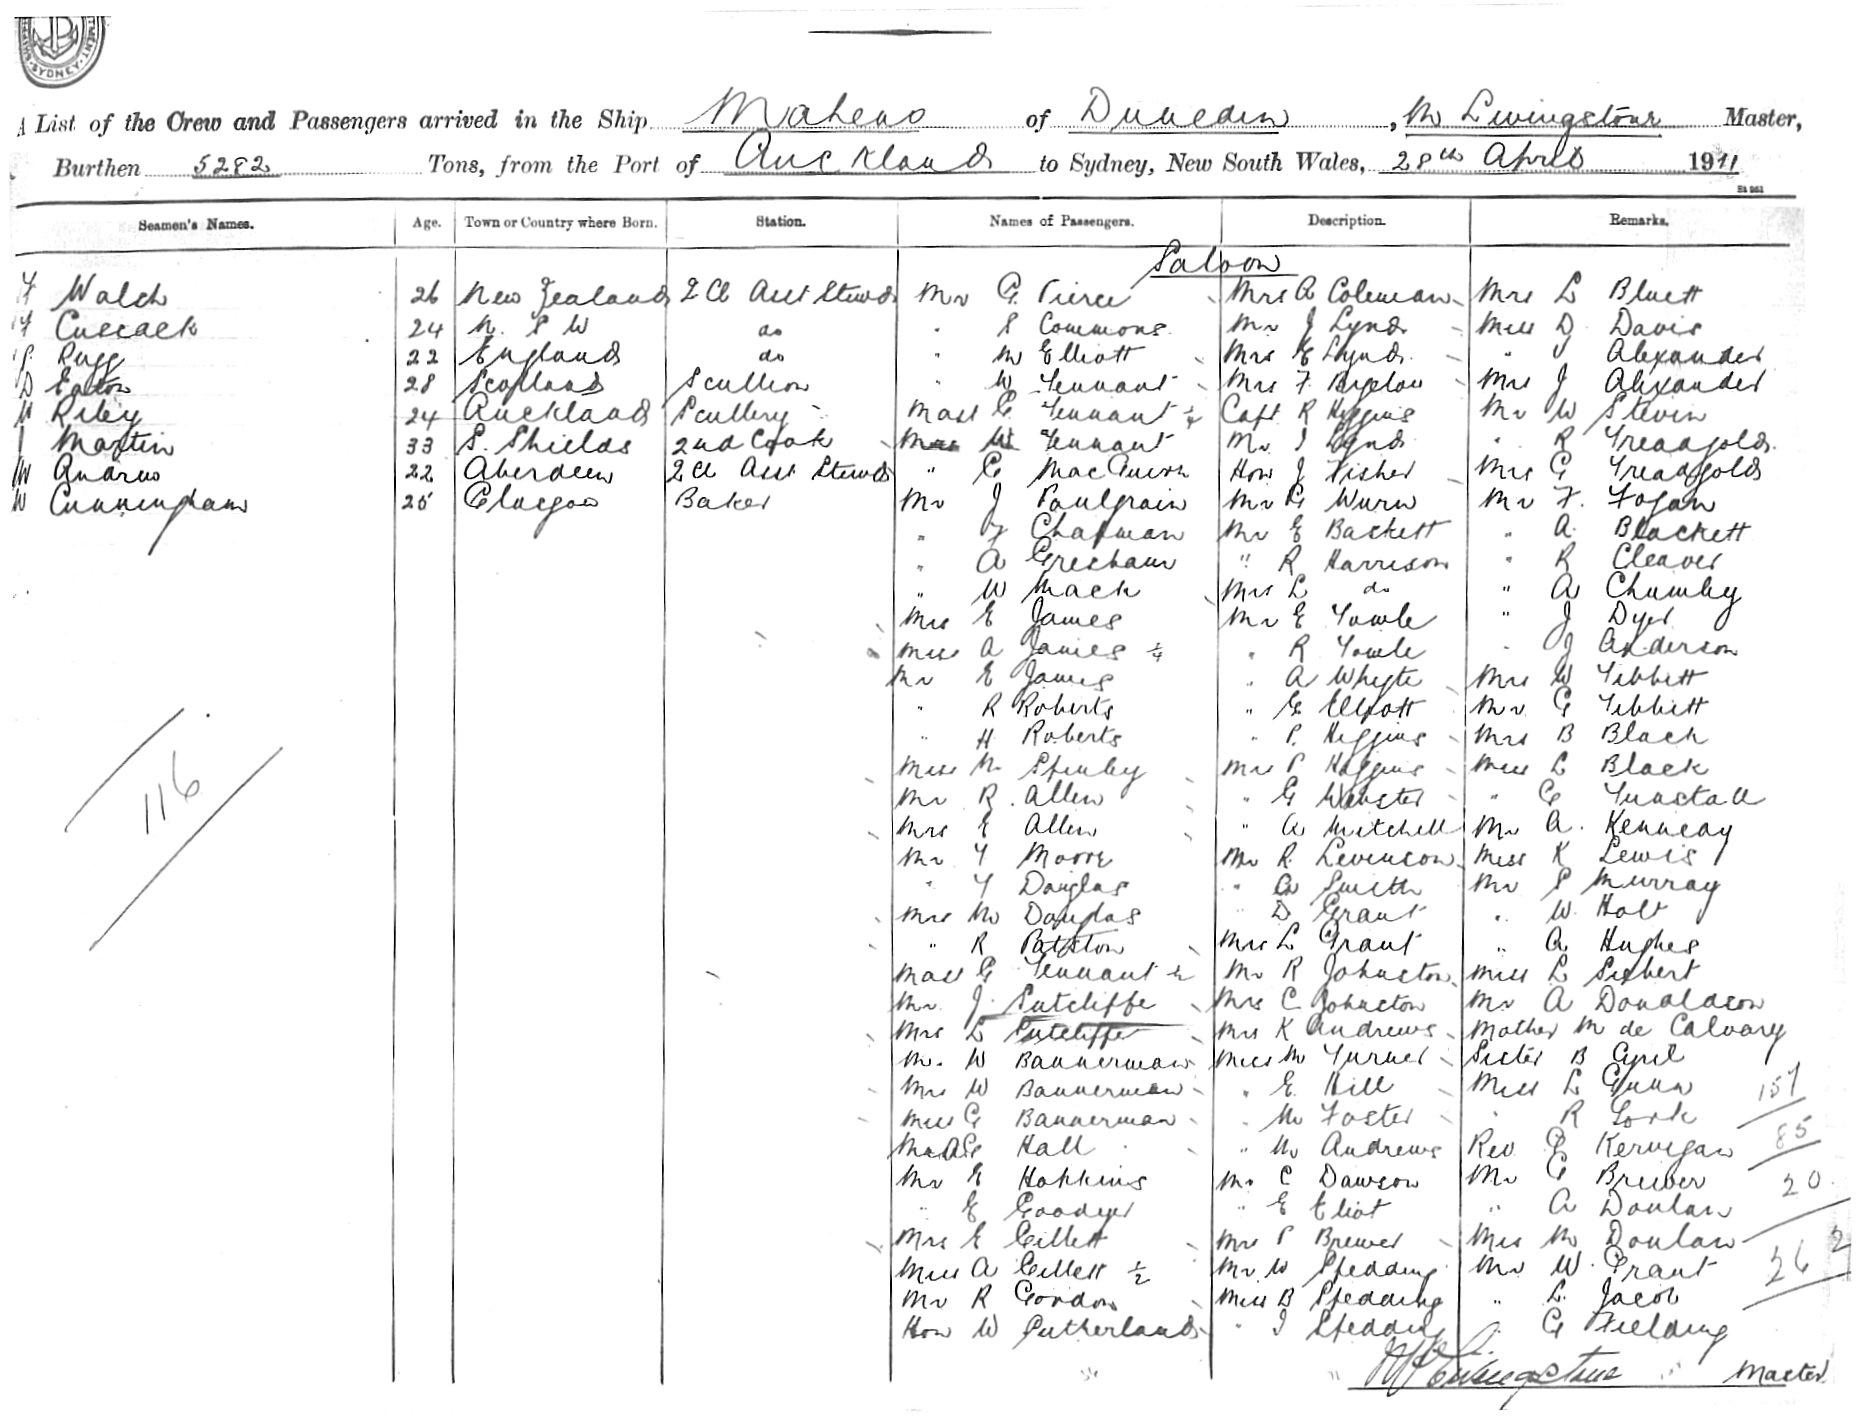 SYDNEY
A List of the Crew and Passengers arrived in the Ship Maheno of Dunedin, M Livingstone Master,
Burthen 5282 Tons, from the Port of Auckland to Sydney, New South Wales, 28th April 1911
Seamen's Names. Age. Town or Country where Born. Station. Names of Passengers. Description. Remarks.
Saloon
Walsh 26 New Zealand 2 Cl Asst Stewd Mr G Pierce Mrs A Coleman Mrs L Bluett
Cussack 24 N. S W do " S Commons Mr J Lynds Miss D Davis
Rugg 22 England do " M Elliott Mrs E Lynds " J Alexander
D Eaton 28 Scotland Scullion " W Tennant Mrs F Bigelow Mrs J Alexander
W Riley 24 Auckland Scullery Mast G Tennant ½ Capt R Higgins Mr W Stevin
J Martin 33 S. Shields 2nd Cook Tennant Mr I Lynds " R Treadgold
W Andrew 22 Aberdeen 2 Cl Asst Stewd " G Hon J Fisher Mrs G Treadgold
W Cunningham 25 Glasgow Baker Mr J Paulgrain Mr G Wurn Mr F. Fogan
" Chapman Mr E Baskett " A. Blackett
" A Gresham " R Harrison " R Cleaver
" W Mack Mrs L do " A Chumley
Mrs E James Mr E Towle " J Dyer
Miss A James ¼ " R Towle " J Anderson
Mr E James " A Whyte Mrs W Tibbitt
" R Roberts " G Elliott Mr G Tibbitt
" H Roberts " P. Higgins Mrs B Black
116
Miss M Spenley Mrs P Higgins Miss L Black
Mr R. Allen " G Webster " C Tunstall
Mrs E Allen " A Mitchell Mr A. Kennedy
Mr T Moore Mr R. Levenson Miss K Lewis
" T Douglas " A Smith Mr S Murray
Mrs M Douglas " D Grant " W. Holt
" R Patiston Mrs L Grant " A Hughes
Mast G Tennant ½ Mr R Johnston Miss L Siebert
Mr. J. Sutcliffe Mrs C Johnston Mr A Donaldson
Mrs L Sutcliffe Mrs K Andrews Mother M de Calvary
Mr. W Bannerman Miss M Turner Sister B Cyril
Mrs W Bannerman " E. Hill Miss L Gunn 157
Miss G Bannerman " M Foster " R York
Hall " M Andrews Rev Kernegan 85
Mr E Hopkins Mr C Dawson Mr G Brewer 20
" E Goodyer " E Eliot " A Donlan
Mrs E Gillett Mrs P Brewer Mrs M Donlan
Miss A Gillett ½ Mr W Spedding Mr W. Grant 262
Mr R Gordon Miss B Spedding " L. Jacob
Hon W Sutherland " I Spedding " G Fielding
Livingstone Master